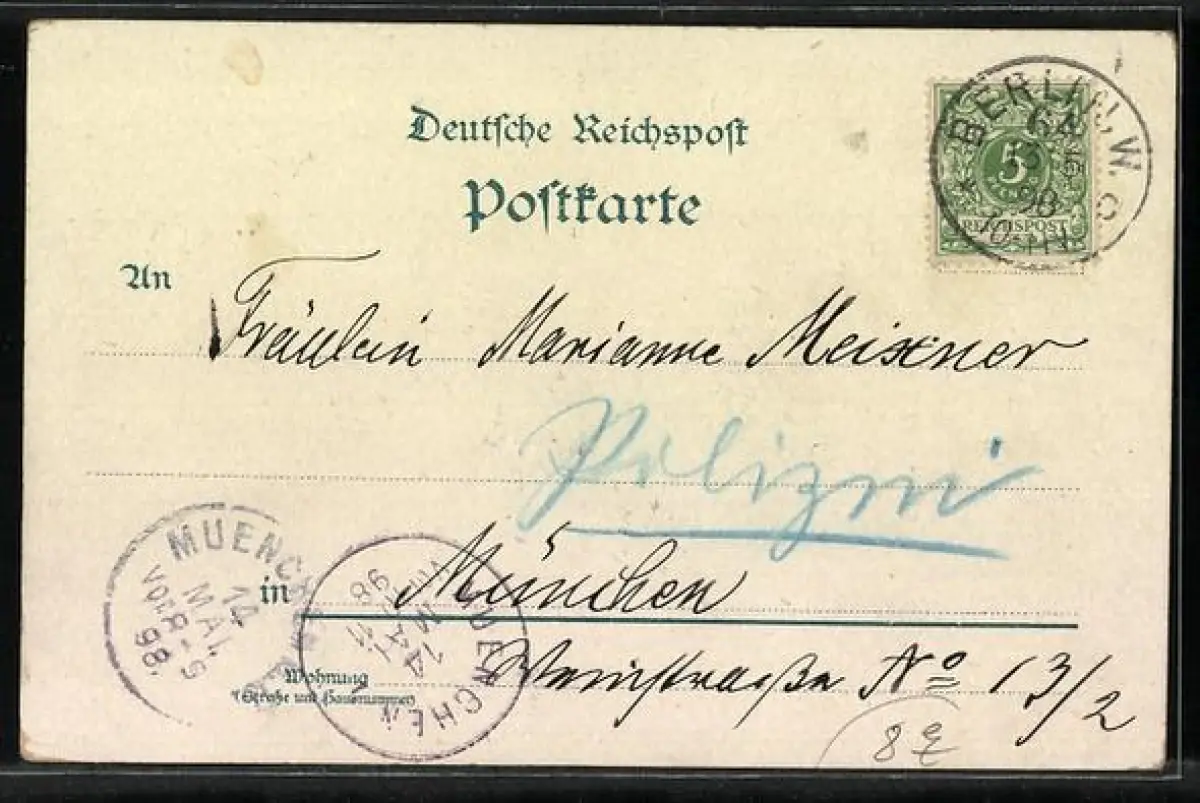 Deutsche Reichspost
Postkarte
BERLIN, W.
64
13 5
98
10-11 N.
5
REICHSPOST
An
Fräulein Marianne Meixner
MUENCHEN
14
MAI.
VOR 8-9
98.
in München
MUENCHEN
14
MAI
98
Wohnung
(Straße und Hausnummer)
Weinstraße No 13/2
8